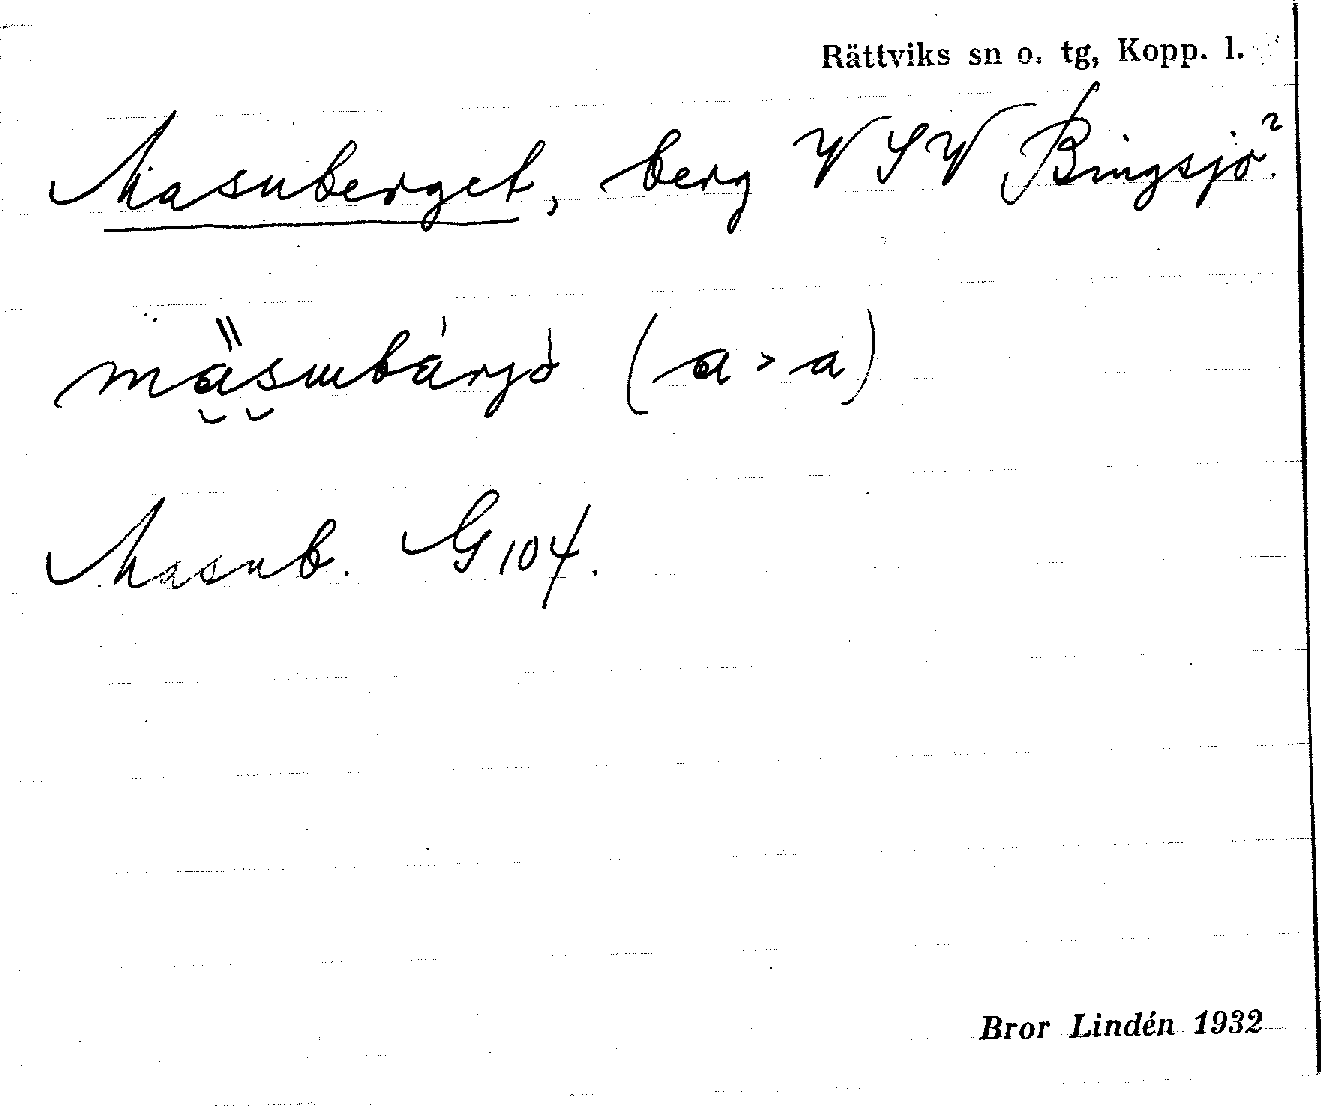 Rättviks sn o. tg, Kopp. l.
Masuberget, berg VSV Bingsjö.
(a > a)
Masub. G 104.
Bror Lindén 1932